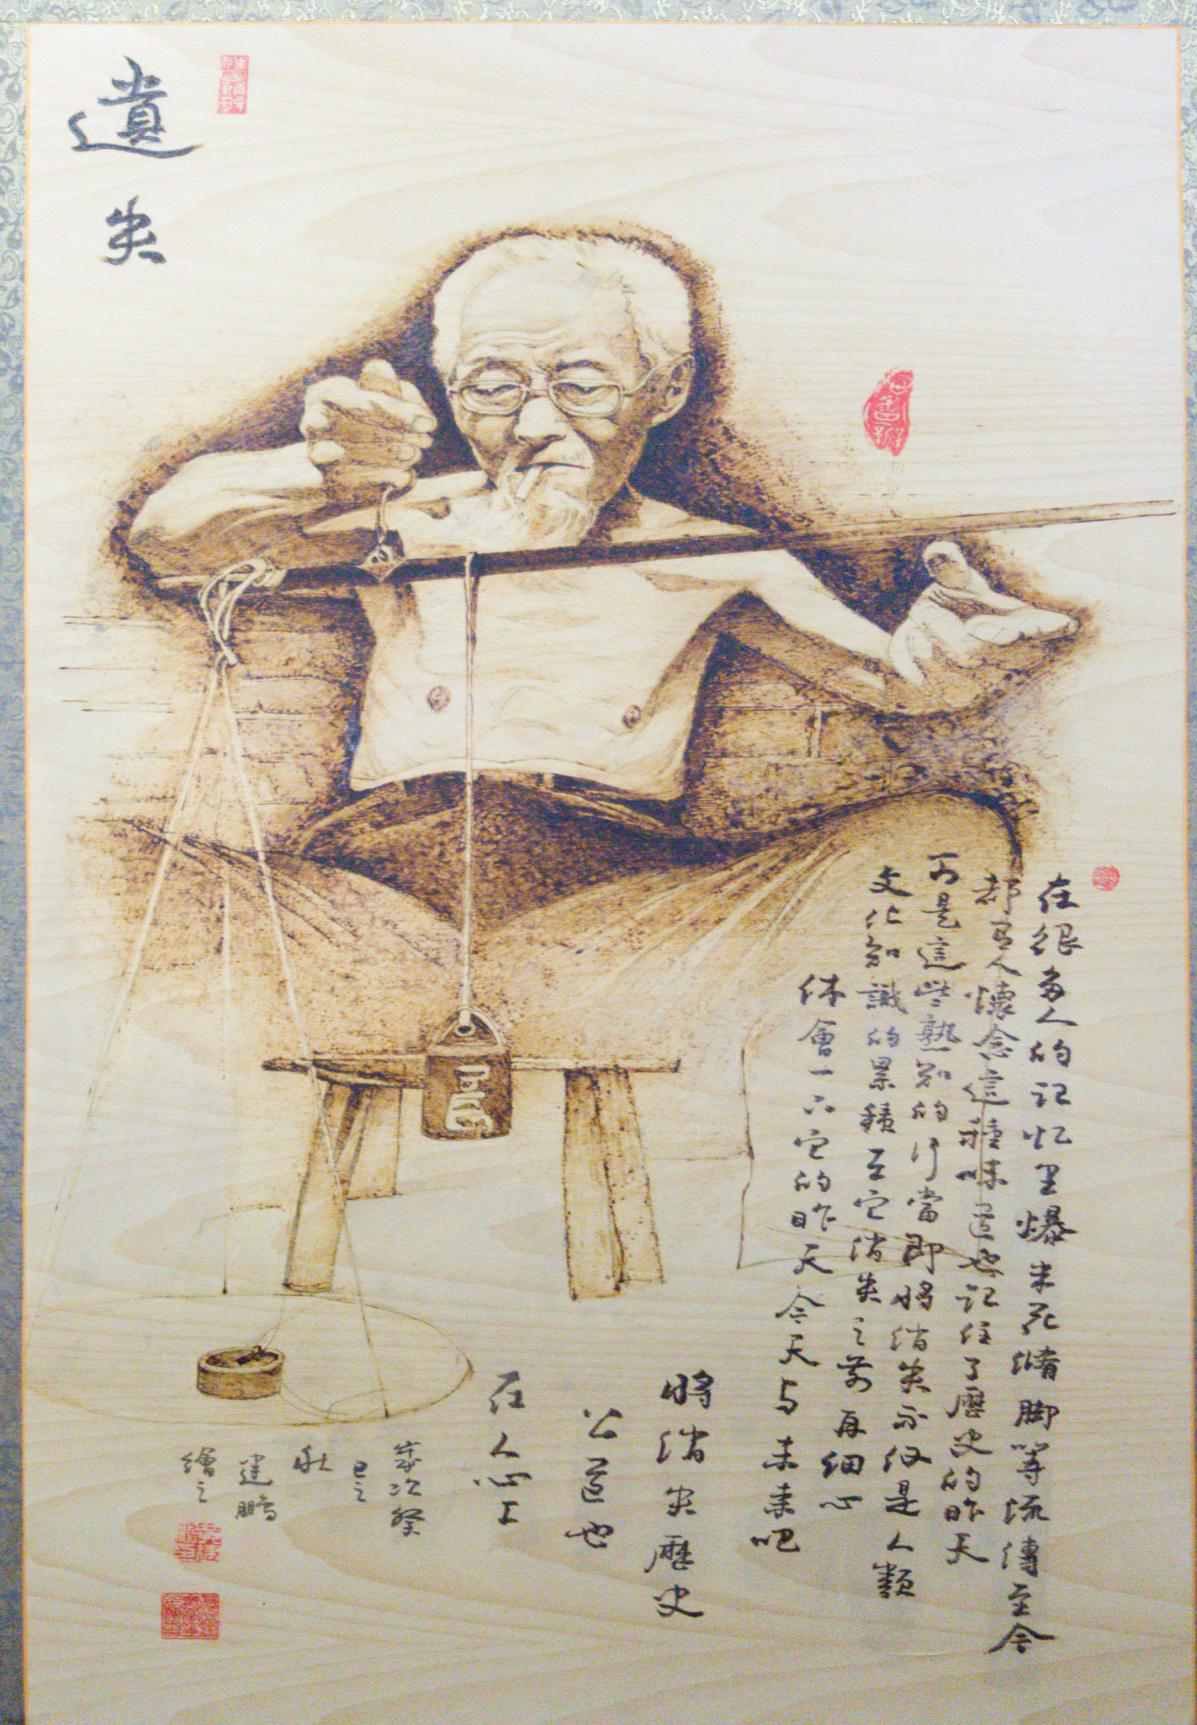 遺失
在很多人的记忆里爆米花脩脚等流傳至今
都有人懷念這種味道也记住了歷史的昨天
可是這些熟知的行當即將消失不仅是人類
文化知識的累積在它消失之前再细心
体會一下它的昨天今天与未来吧
將消失歷史
公道也
在人心上
歲次癸
巳之
秋
建鵬
繪之